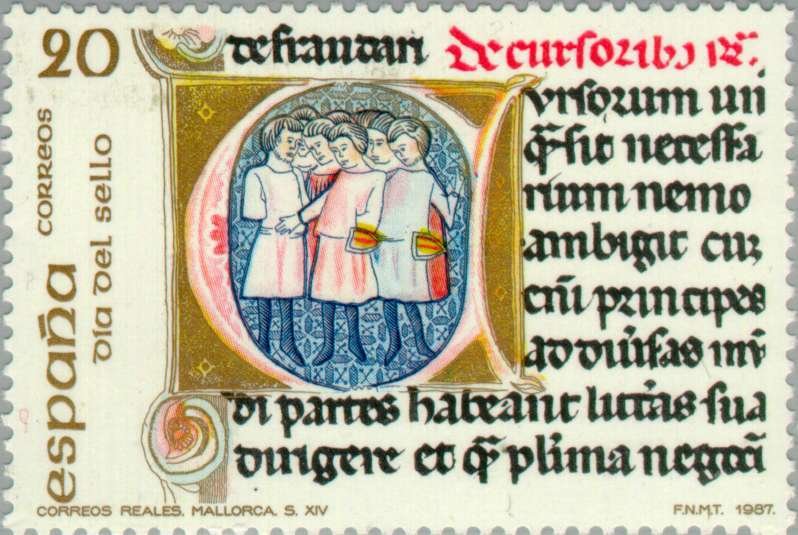 20
CORREOS
España
DÍA DEL SELLO
defraudari De cursoribꝫ
ursorum un
necessa
rium nemo
ambigit cur
principes
ad diu'sas mũ
di partes habeant litt'as sua
dirigere et pl'ima negoci
CORREOS REALES. MALLORCA. S. XIV
F.N.M.T. 1987.